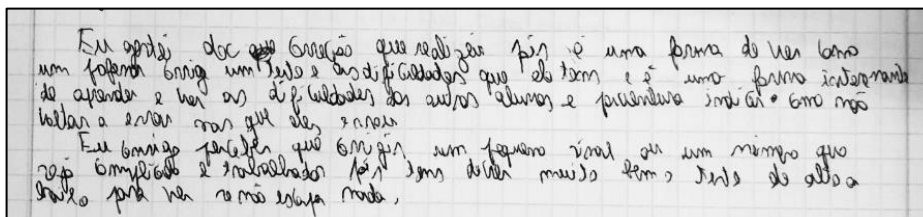 Eu gostei da correção que realizei pois é uma forma de ver como
um professor corrige um teste e as dificuldades que ele tem e é uma forma interessante
de aprender e ver as dificuldades dos outros alunos e como não
voltar a errar nas que eles erraram
Eu consegui perceber que corrigir um pequeno sinal ou um mínimo que
seja complicado e trabalhoso pois tem de ver muito bem o teste de alto a
baixo para ver se não escapa nada.